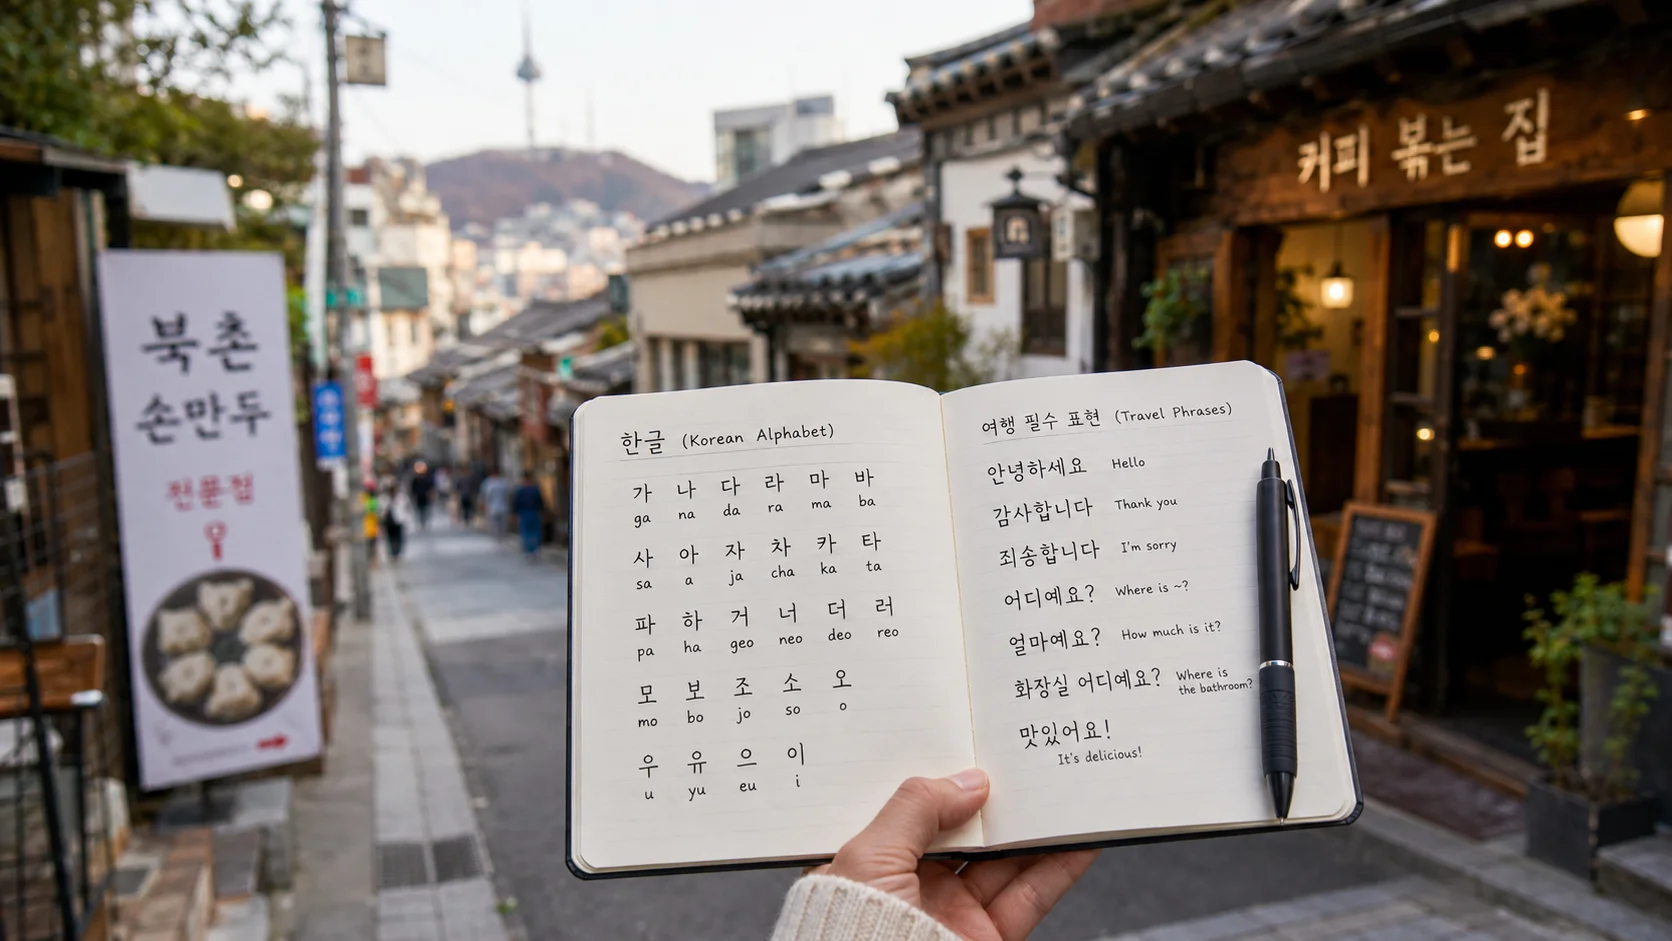 북촌
손만두
전문점
커피 볶는 집
한글 (Korean Alphabet)
가 나 다 라 마 바
ga na da ra ma ba
사 아 자 차 카 타
sa a ja cha ka ta
파 하 거 너 더 러
pa ha geo neo deo reo
모 보 조 소 오
mo bo jo so o
우 유 으 이
u yu eu i
여행 필수 표현 (Travel Phrases)
안녕하세요 Hello
감사합니다 Thank you
죄송합니다 I'm sorry
어디예요? Where is ~?
얼마예요? How much is it?
화장실 어디예요? Where is
the bathroom?
맛있어요!
It's delicious!